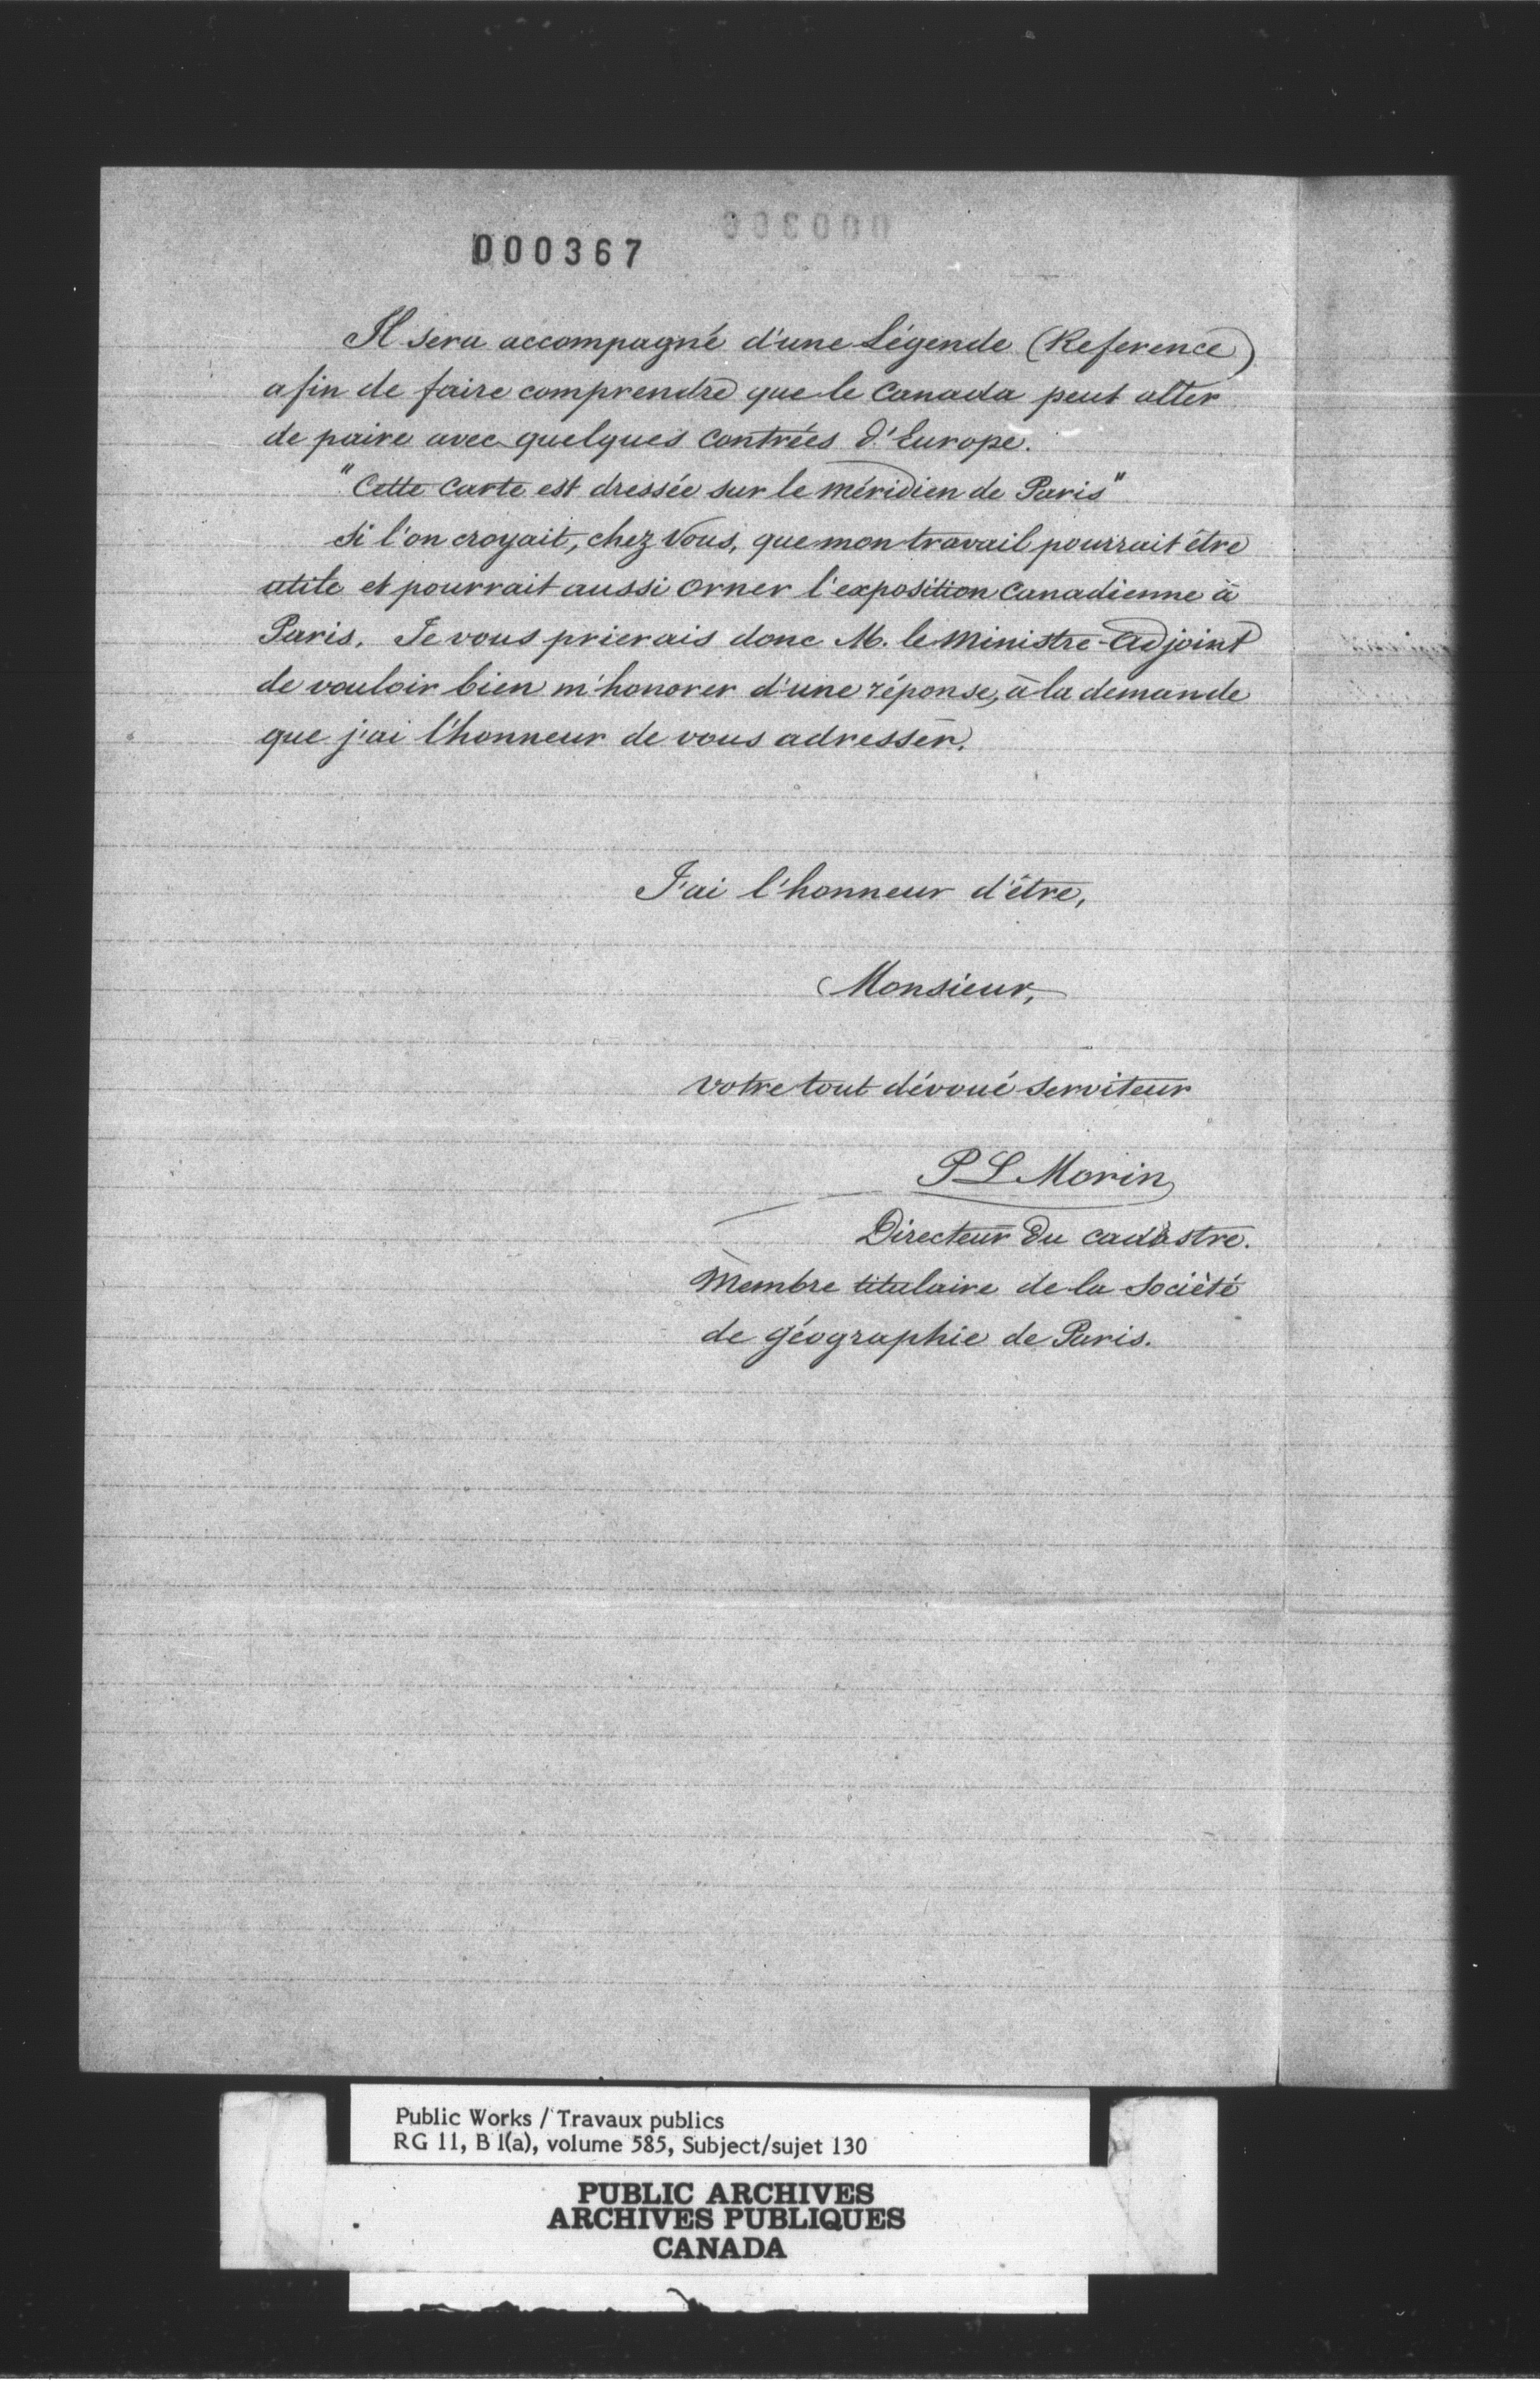 000367
Il sera accompagné d'une Légende (Reference)
afin de faire comprendre que le Canada peut aller
de paire avec quelques Contrées d'Europe.
"Cette Carte est dressée sur le méridien de Paris"
Si l'on croyait, chez Vous, que mon travail pourrait être
utile et pourrait aussi orner l'exposition Canadienne à
Paris. Je vous prierais donc M. le Ministre-Adjoint
de vouloir bien m'honorer d'une réponse, à la demande
que j'ai l'honneur de vous adresser.
J'ai l'honneur d'être,
Monsieur,
votre tout dévoué serviteur
P L Morin
Directeur du cadastre.
Membre titulaire de la Société
de géographie de Paris.
Public Works / Travaux publics
RG 11, B 1(a), volume 585, Subject/sujet 130
PUBLIC ARCHIVES
ARCHIVES PUBLIQUES
CANADA